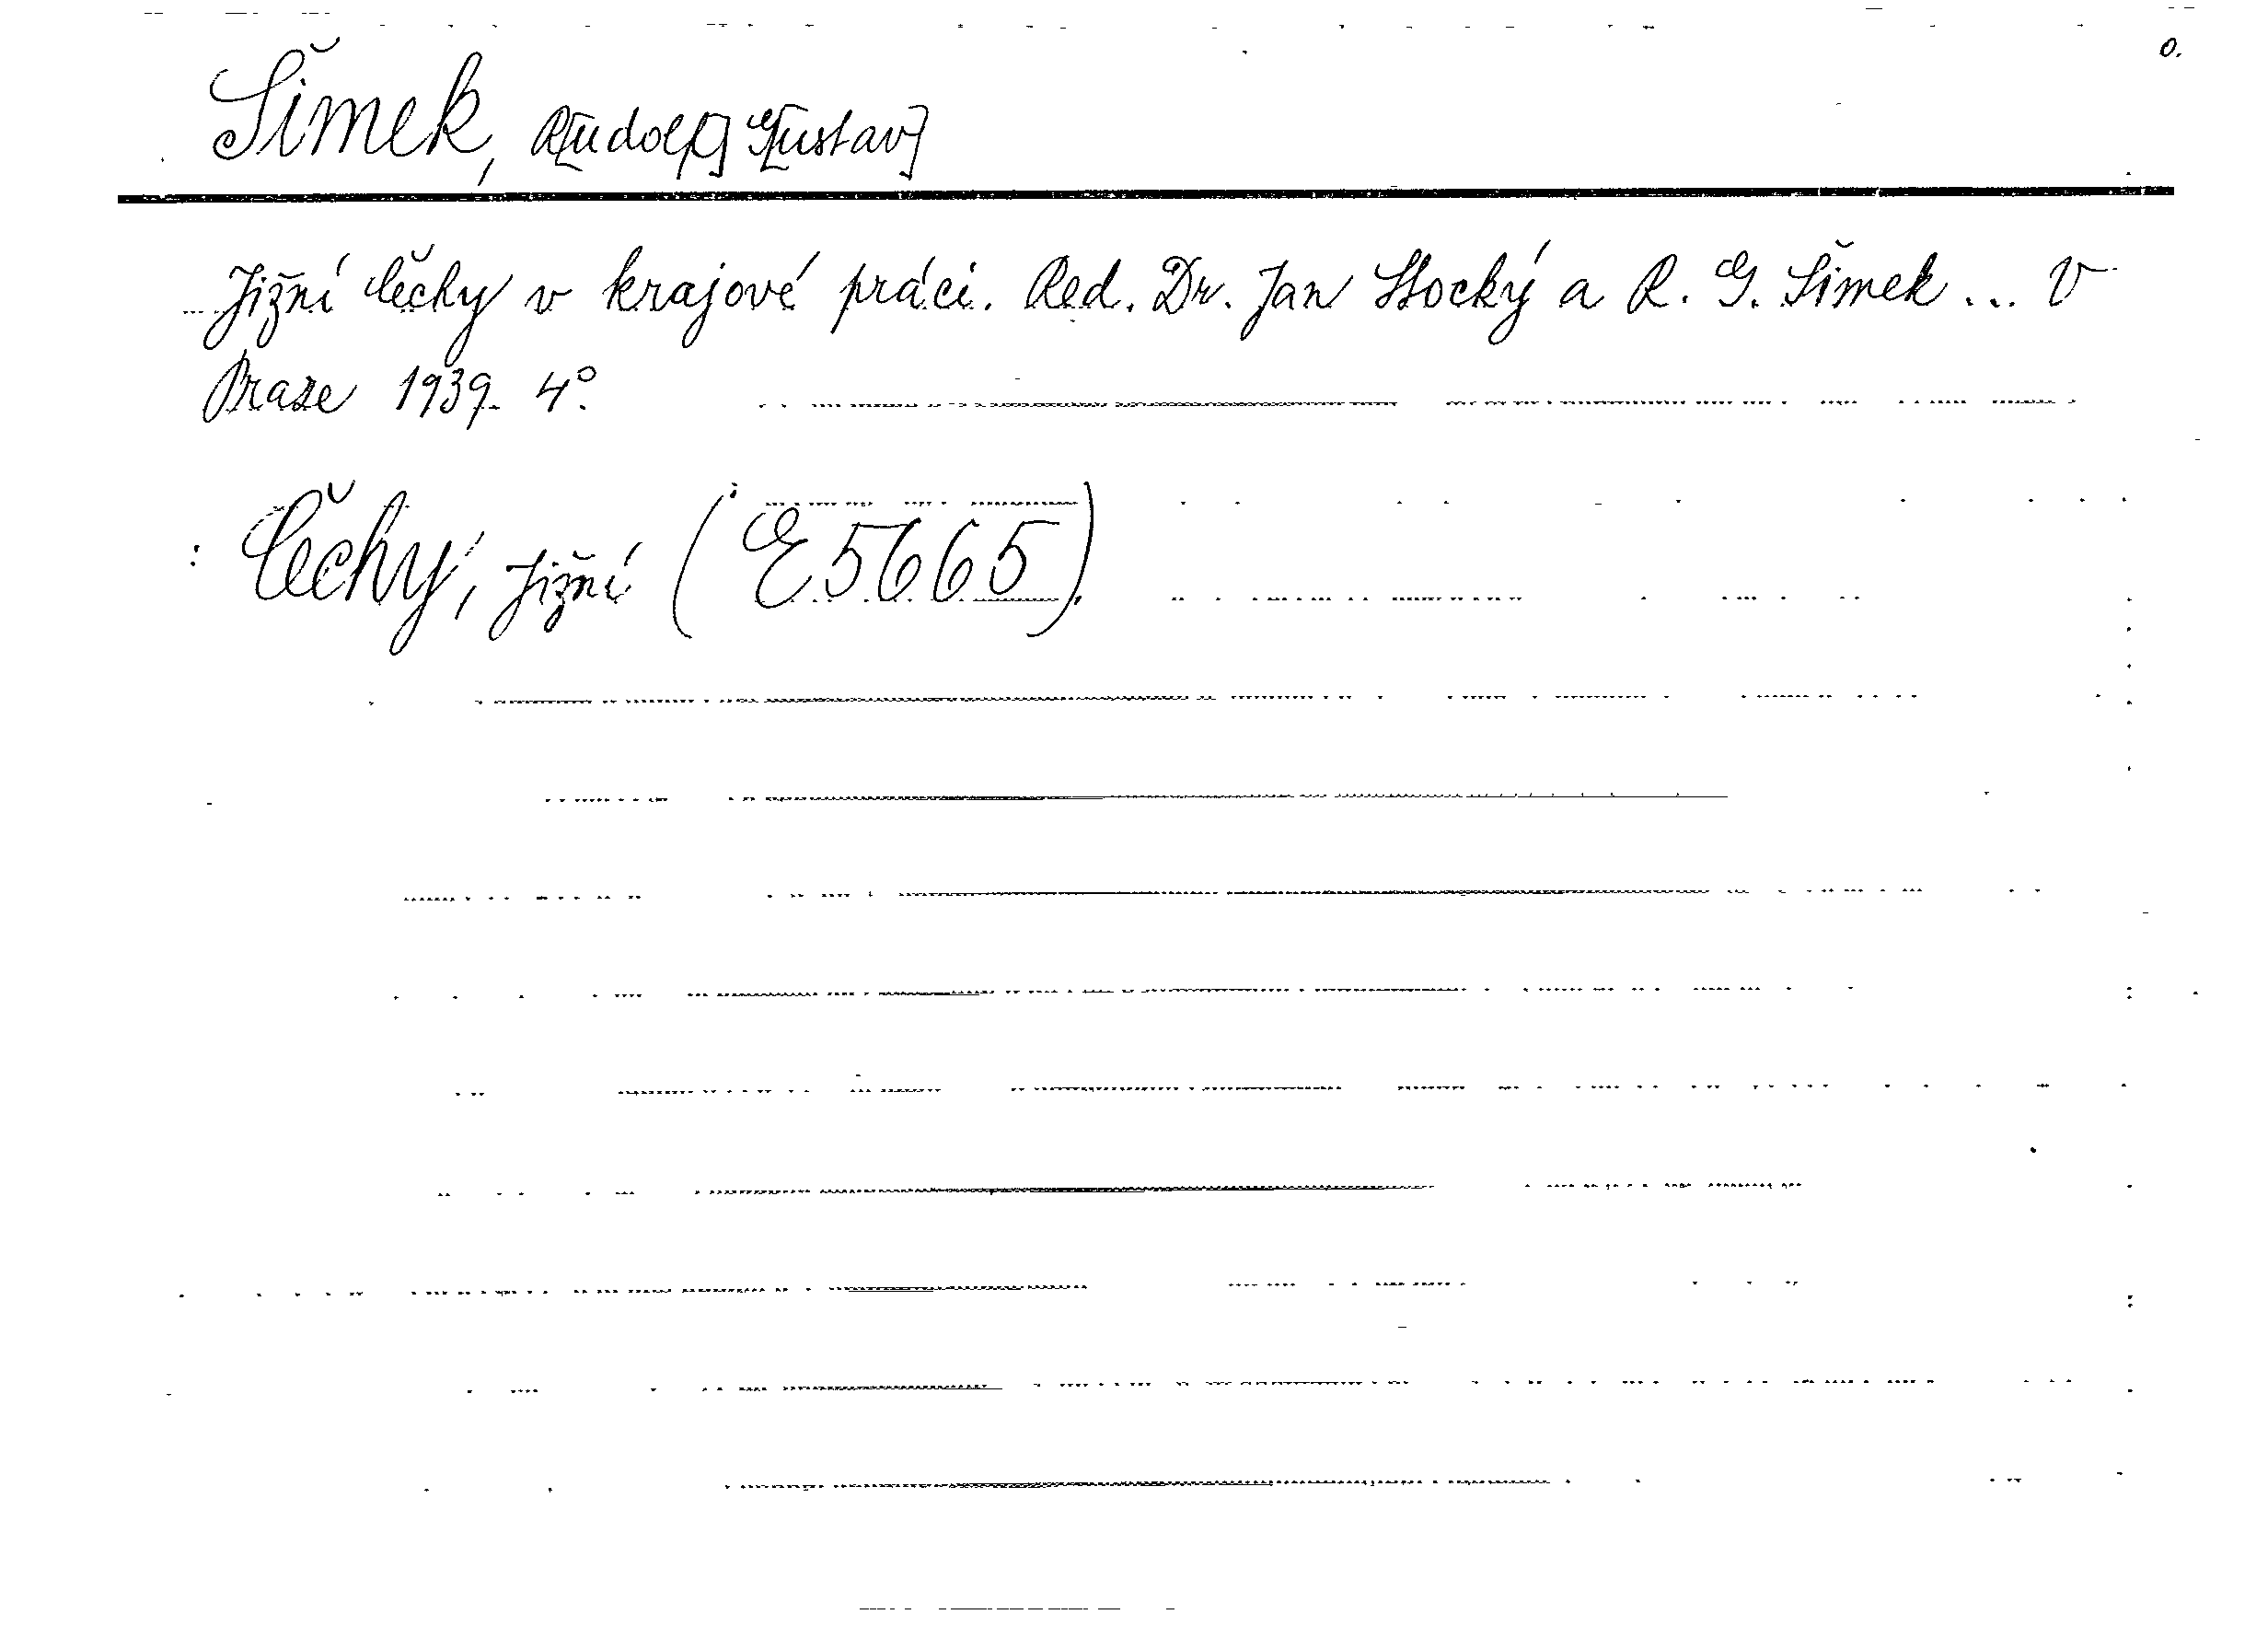 o.
Šimek, R[udolf] G[ustav]
Jižní Čechy v krajové práci. Red. Dr. Jan Stocký a R. G. Šimek ... V
Praze 1939. 4°.
Čechy, jižní (E5665).